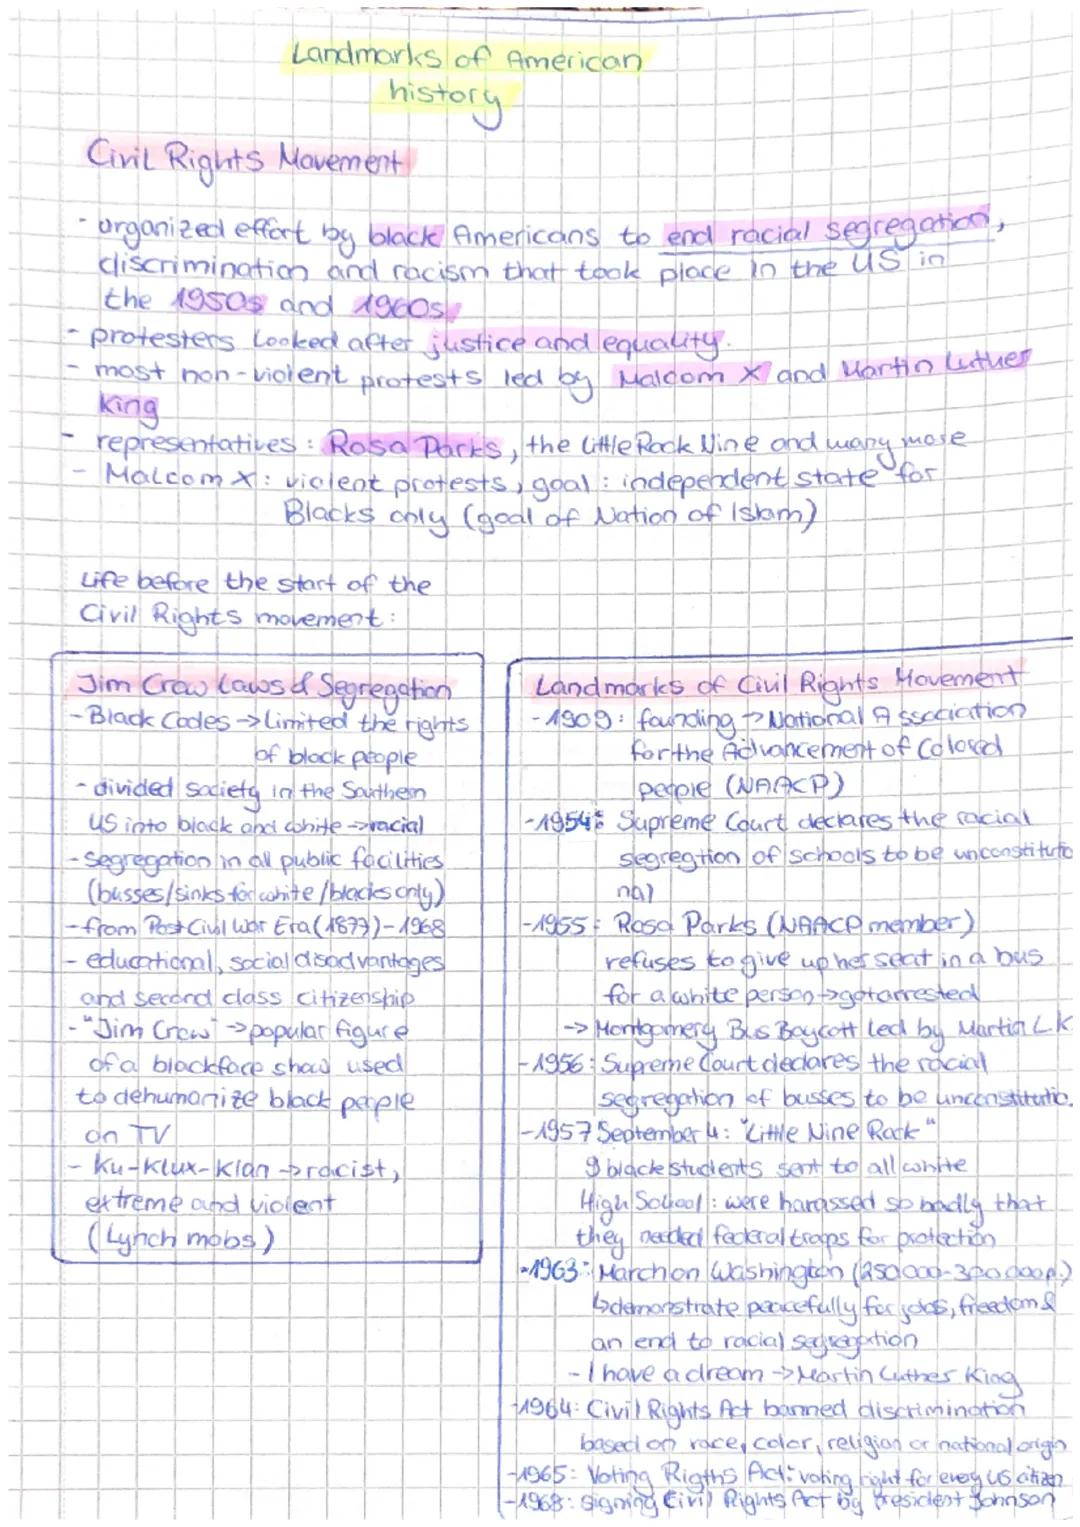 Landmarks of American
history
Civil Rights Movement
- organized effort by black Americans to end racial segregation,
discrimination and racism that took place in the US in
the 1950s and 1960s
- protesters looked after justice and equality.
- most non-violent protests led by Malcom X and Martin Luther
King
- representatives: Rosa Parks, the Little Rock Nine and many more
- Malcom X: violent protests, goal: independent state for
Blacks only (goal of Nation of Islam)
Life before the start of the
Civil Rights movement:
Jim Crow Laws & Segregation
- Black Codes → Limited the rights
of black people
- divided society in the Southern
US into black and white → racial
- Segregation in all public facilities
(busses/sinks for white/blacks only)
- from Post Civil War Era (1877) - 1968
- educational, social disadvantages
and second class citizenship
- "Jim Crow" → popular figure
of a blackface show used
to dehumanize black people
on TV
- Ku-Klux-Klan → racist,
extreme and violent
(Lynch mobs)
Landmarks of Civil Rights Movement
- 1909: founding → National Association
for the Advancement of Colored
people (NAACP)
- 1954: Supreme Court declares the racial
segregtion of schools to be unconstitutio
nal
- 1955: Rosa Parks (NAACP member)
refuses to give up her seat in a bus
for a white person → got arrested
→ Montgomery Bus Boycott led by Martin L.K
- 1956: Supreme Court declares the racial
segregation of busses to be unconstitutio.
- 1957 September 4: "Little Nine Rock"
9 black students sent to all white
High School: were harassed so badly that
they needed federal troops for protection
- 1963: March on Washington (250 000-300 000 p.)
↳ demonstrate peacefully for jobs, freedom &
an end to racial segregation
- I have a dream → Martin Luther King
- 1964: Civil Rights Act banned discrimination
based on race, color, religion or national origin
- 1965: Voting Rigths Act: voting right for every US citizen
- 1968: signing Civil Rights Act by president Johnson